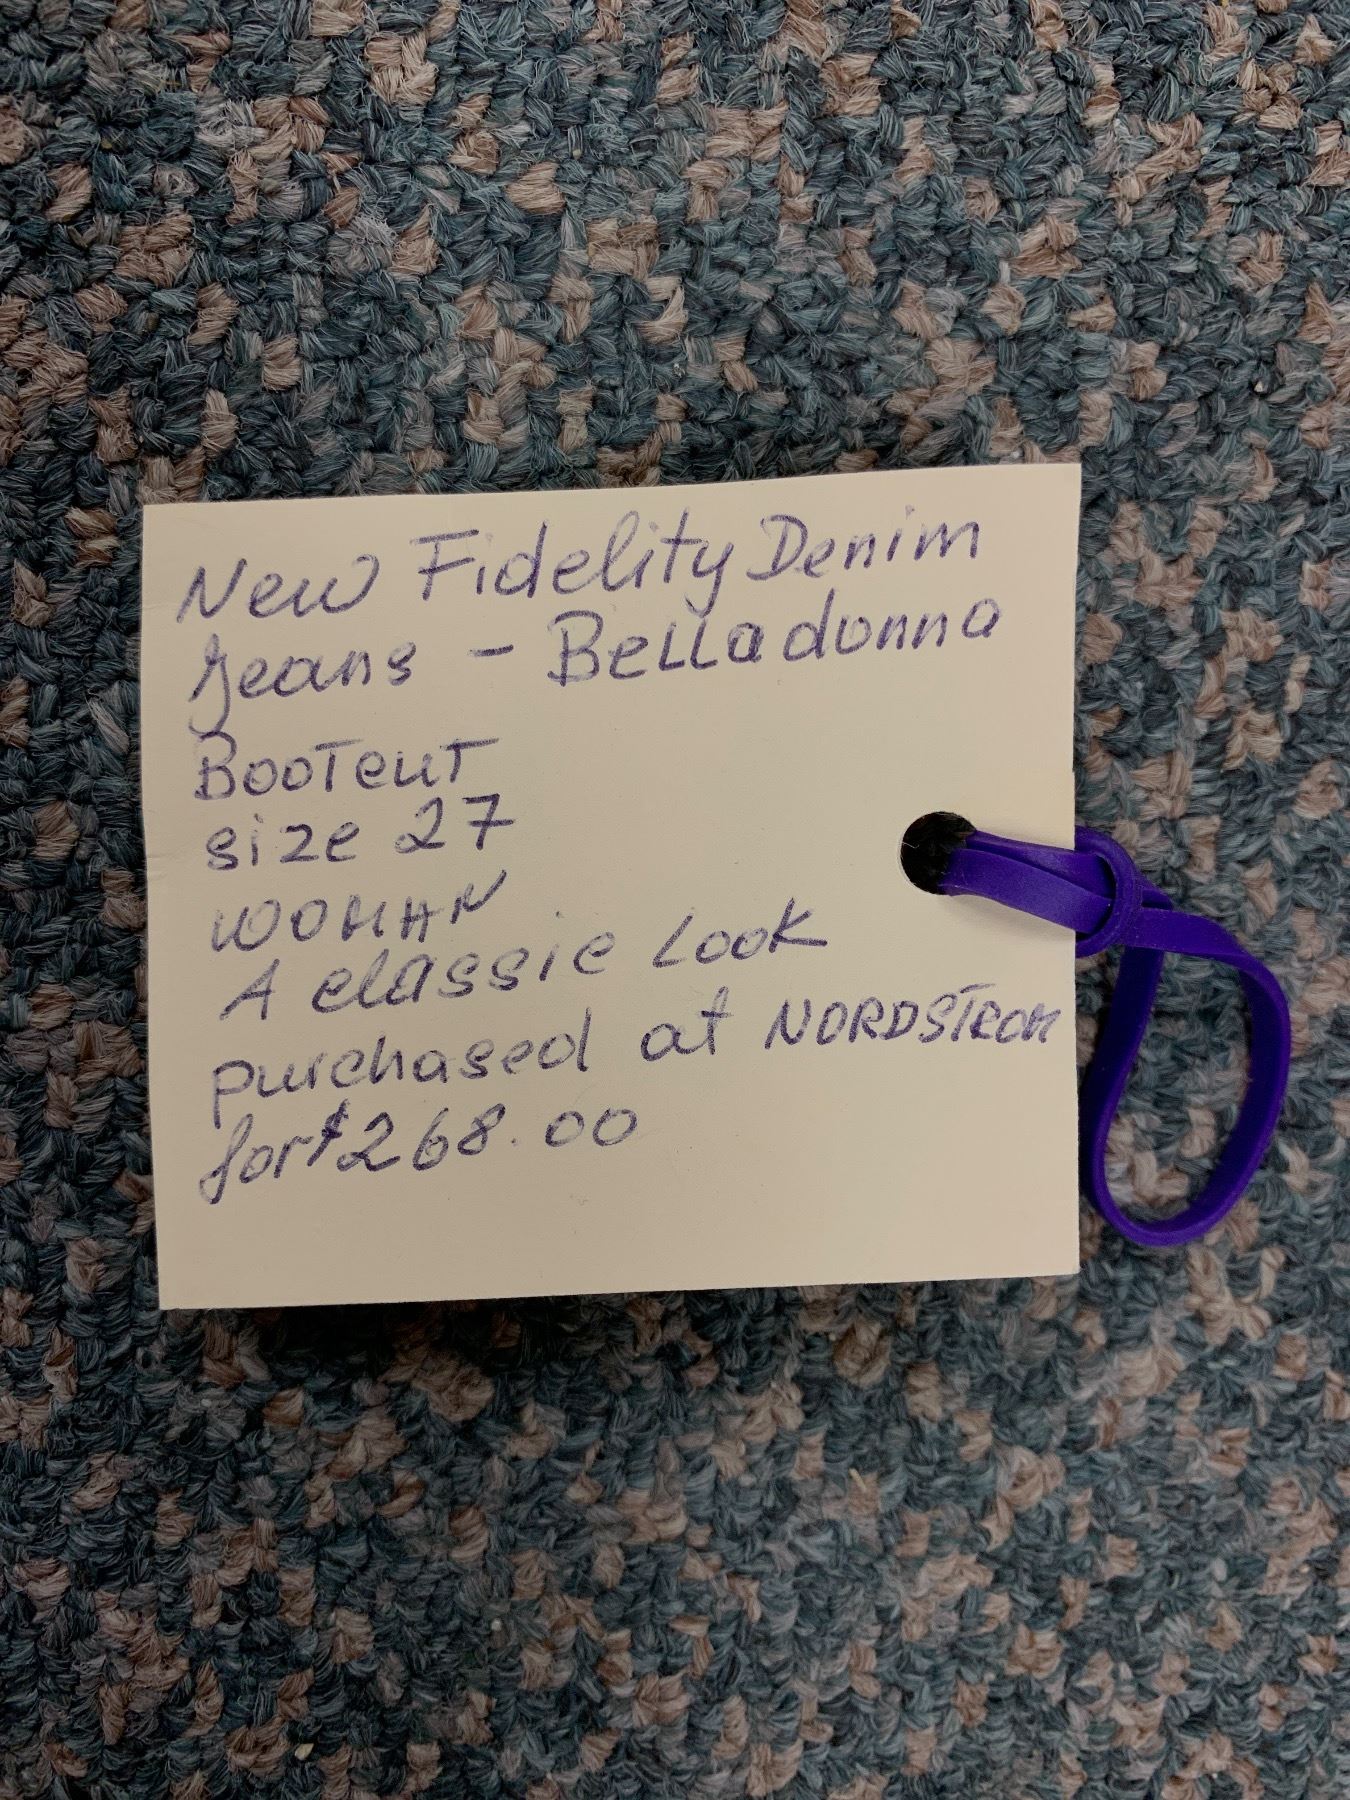 New Fidelity Denim
Jeans - Belladonna
Bootcut
size 27
WOMAN
A classic Look
purchased at NORDSTROM
for $268.00